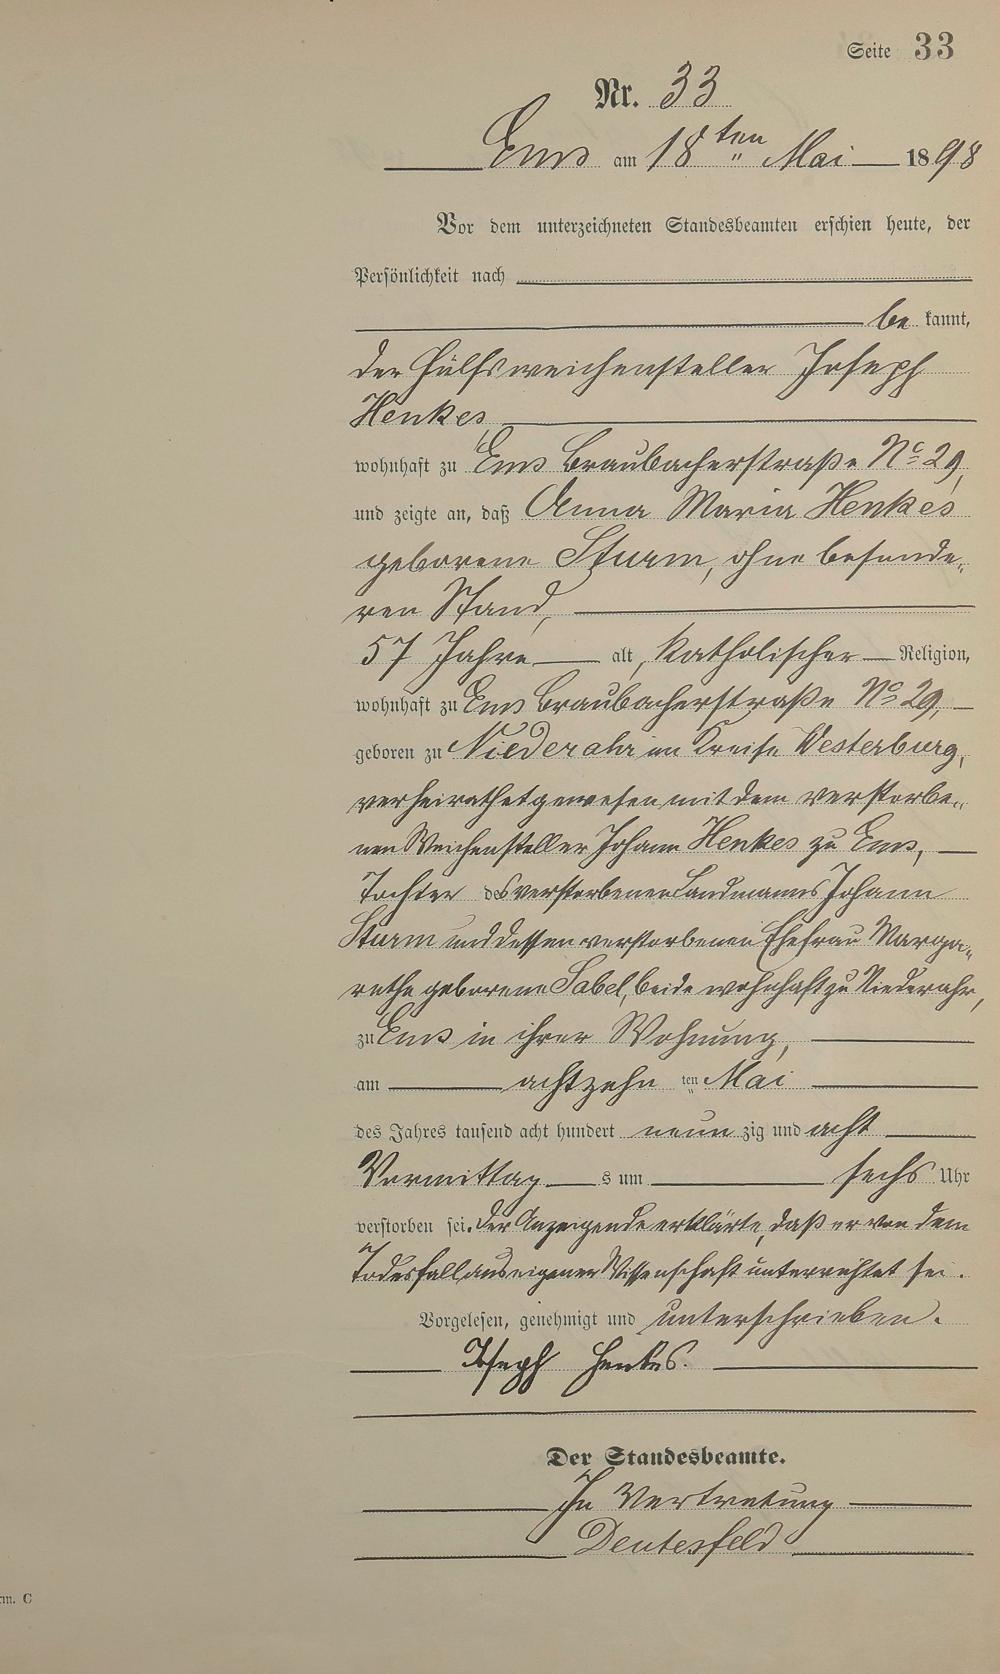 Seite 33
Nr. 33
Ems am 18ten Mai 1898
Vor dem unterzeichneten Standesbeamten erschien heute, der
Persönlichkeit nach
be kannt,
der Hülfsweichensteller Joseph
Henkes,
wohnhaft zu Ems Braubacherstraße No 29,
und zeigte an, daß Anna Maria Henkes
geborene Sturm, ohne besonde-
ren Stand,
57 Jahre alt, katholischer Religion,
wohnhaft zu Ems Braubacherstraße No 29,
geboren zu Niederahr im Kreise Westerburg,
verheirathet gewesen mit dem verstorbe-
nen Weichensteller Johann Henkes zu Ems,
Tochter des verstorbenen Landmanns Johann
Sturm und dessen verstorbenen Ehefrau Marga-
rethe geborene Sabel, beide wohnhaft zu Niederahr,
zu Ems in ihrer Wohnung,
am achtzehn ten Mai
des Jahres tausend acht hundert neun zig und acht
Vormittag s um sechs Uhr
verstorben sei. Der Anzeigende erklärte, daß er von dem
Todesfall aus eigener Wissenschaft unterrichtet sei.
Vorgelesen, genehmigt und unterschrieben.
Joseph Henkes.
Der Standesbeamte.
In Vertretung
Deutesfeld
rm. C